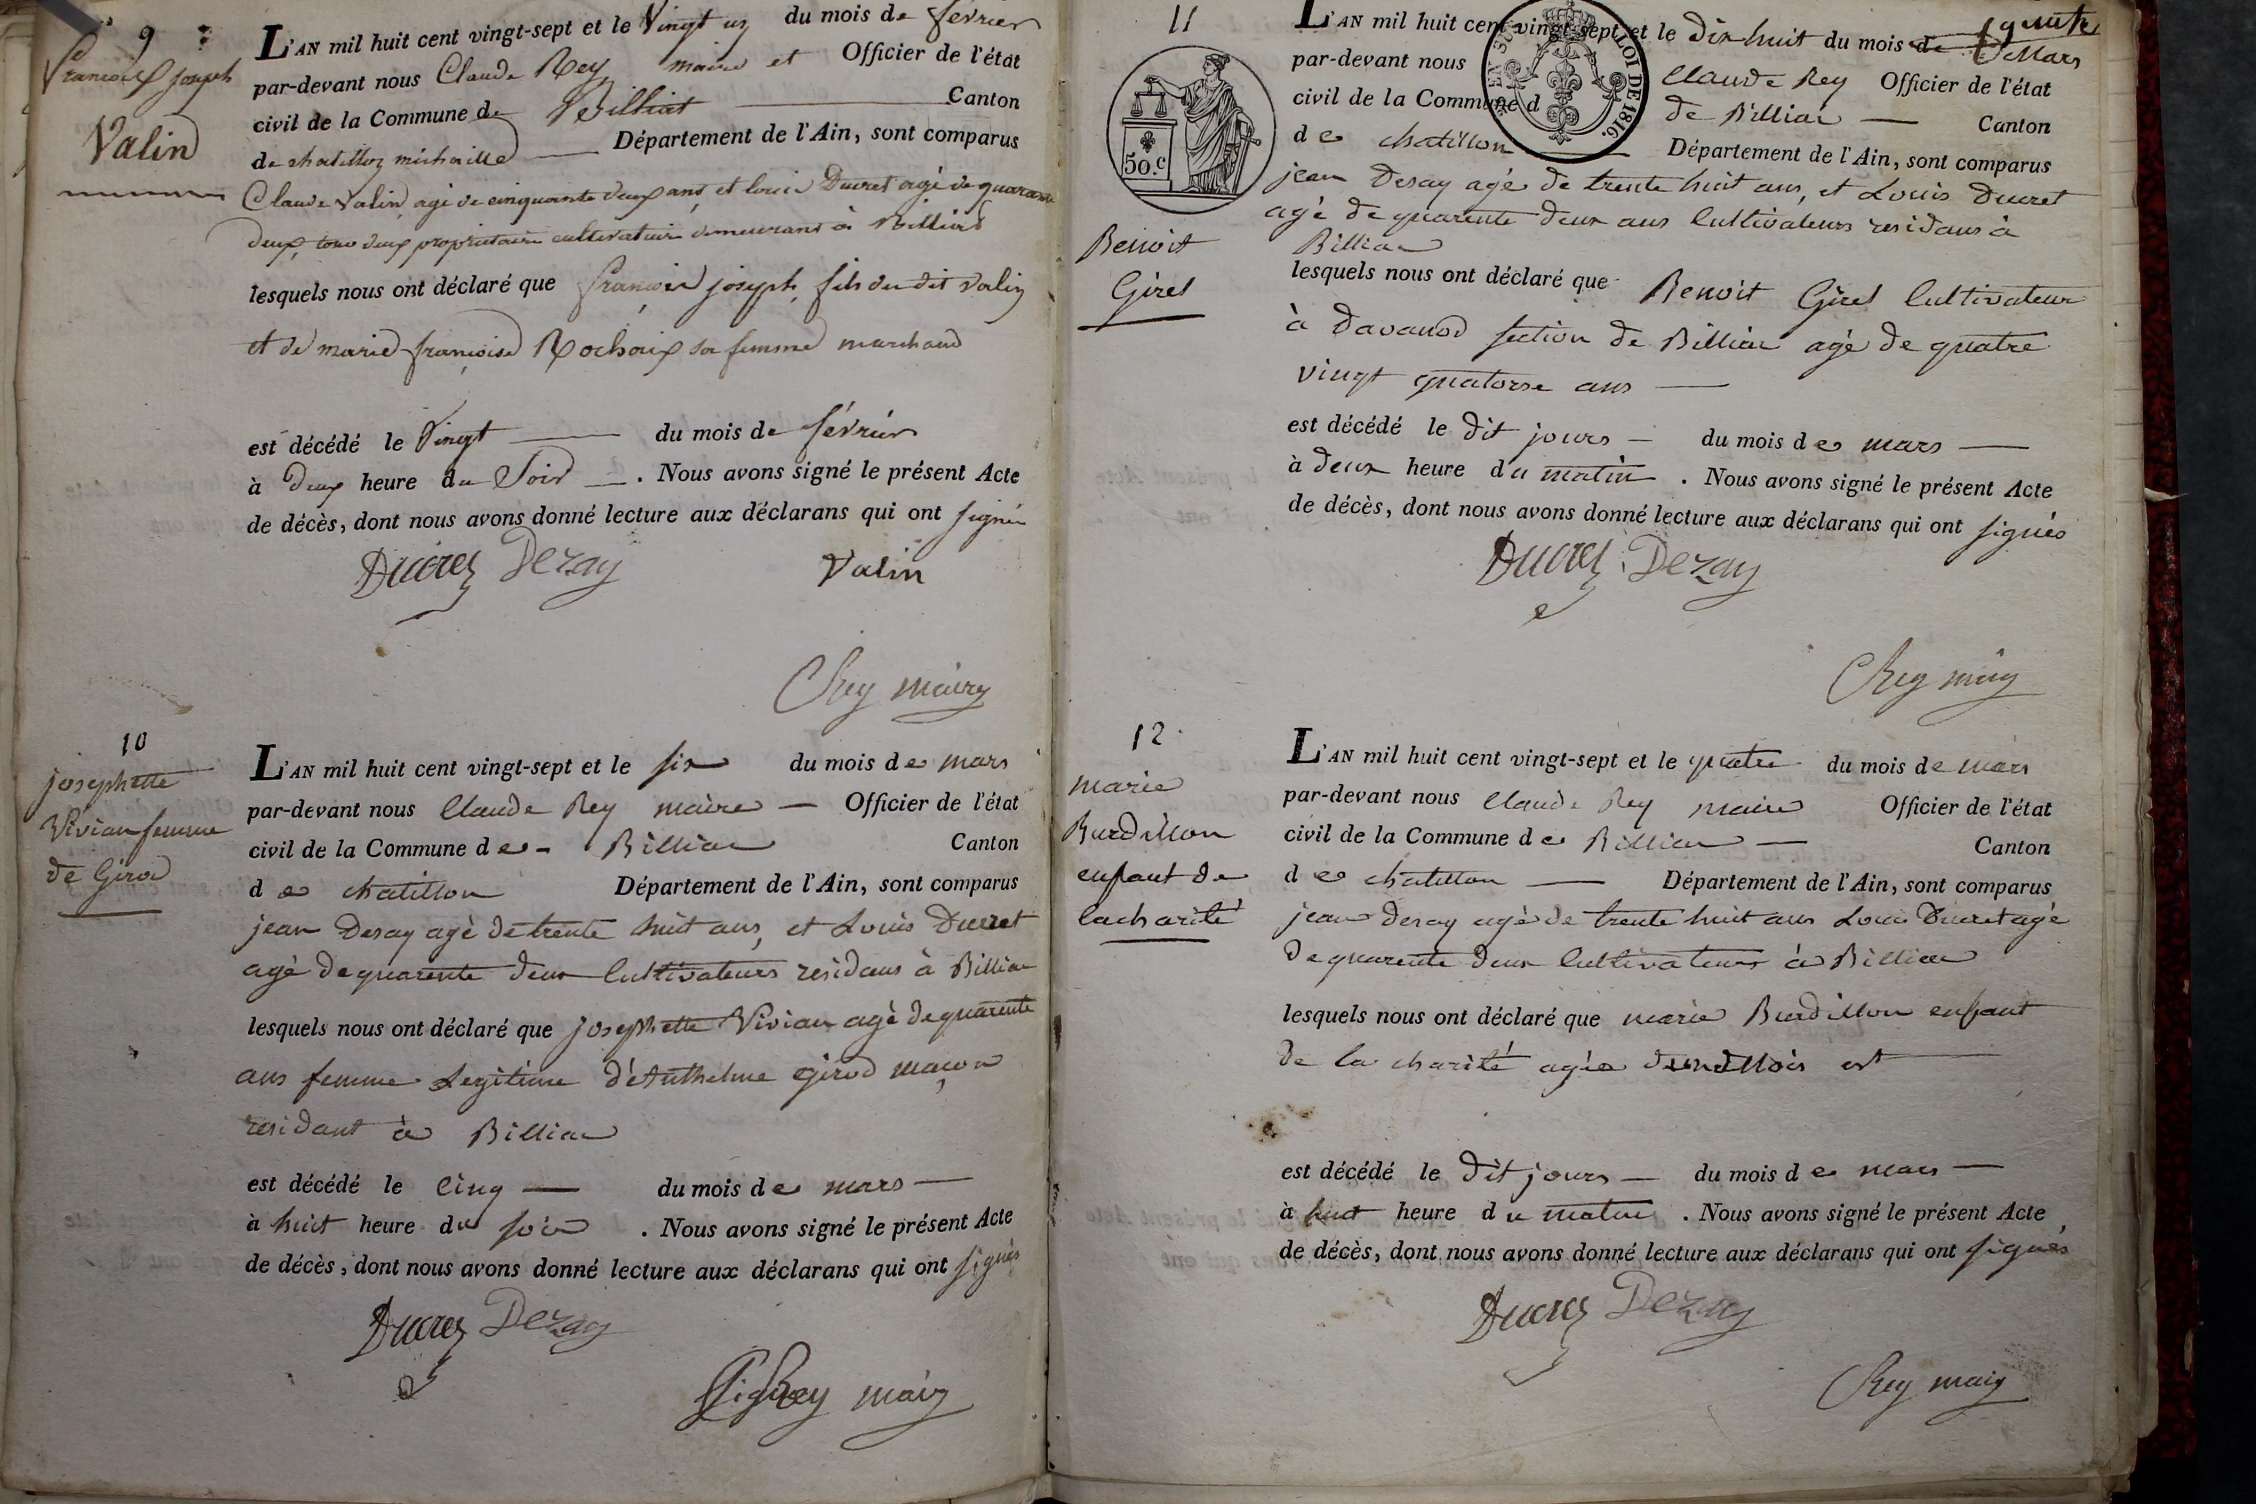 9
François joseph
Valin
L'AN mil huit cent vingt-sept et le Vingt un du mois de février
par-devant nous Claude Rey maire et Officier de l'état
civil de la Commune de Billiat Canton
de chatillon michaille Département de l'Ain, sont comparus
Claude valin agé de cinquante deux ans et louis Ducret agé de quarante
deux, tous deux propriétaire cultivateurs demeurant à Billiat
lesquels nous ont déclaré que françois joseph, fils du dit valin
et de marie françoise Rochaix sa femme marchand
est décédé le Vingt du mois de février
à deux heure du Soir . Nous avons signé le présent Acte
de décès, dont nous avons donné lecture aux déclarans qui ont signés
Ducret Dezay Valin
Rey maire
10
josephette
Vivian femme
de Girod
L'AN mil huit cent vingt-sept et le six du mois de mars
par-devant nous Claude Rey maire Officier de l'état
civil de la Commune de Billiat Canton
de chatillon Département de l'Ain, sont comparus
jean Desay agé de trente huit ans, et Louis Ducret
agé de quarente deux Cultivateurs residans à Billiat
lesquels nous ont déclaré que josephette Vivian agé de quarente
ans femme Legitime d'Anthelme girod maçon
residant à Billiat
est décédé le cinq du mois de mars
à huit heure du soir . Nous avons signé le présent Acte
de décès, dont nous avons donné lecture aux déclarans qui ont signés
Ducret Dezay
Rey maire
11
50.c
LOI DE 1816.
Benoit
Girel
L'AN mil huit cent vingt-sept et le dix huit du mois de Mars
par-devant nous Claude Rey Officier de l'état
civil de la Commune d de Billiat Canton
de chatillon Département de l'Ain, sont comparus
jean Desay agé de trente huit ans, et Louis Ducret
agé de quarente deux ans Cultivateurs residans à
Billiat
lesquels nous ont déclaré que Benoit Girel Cultivateur
à davanod section de Billiat agé de quatre
vingt quatorse ans
est décédé le dit jours du mois de mars
à deux heure du matin . Nous avons signé le présent Acte
de décès, dont nous avons donné lecture aux déclarans qui ont signés
Ducret Dezay
Rey maire
12
marie
Burdillon
enfant de
la charité
L'AN mil huit cent vingt-sept et le quatre du mois de mars
par-devant nous Claude Rey maire Officier de l'état
civil de la Commune de Billiat Canton
de chatillon Département de l'Ain, sont comparus
jean Desay agé de trente huit ans Louis Ducret agé
de quarente deux Cultivateurs à Billiat
lesquels nous ont déclaré que marie Burdillon enfant
de la charité agée d'un Mois est
est décédé le dit jours du mois de mars
à huit heure du matin . Nous avons signé le présent Acte
de décès, dont nous avons donné lecture aux déclarans qui ont signés
Ducret Dezay
Rey maire